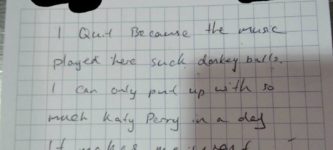 I Quit Because the music
played here suck donkey balls.
I can only put up with so
much Katy Perry in a day
It makes me